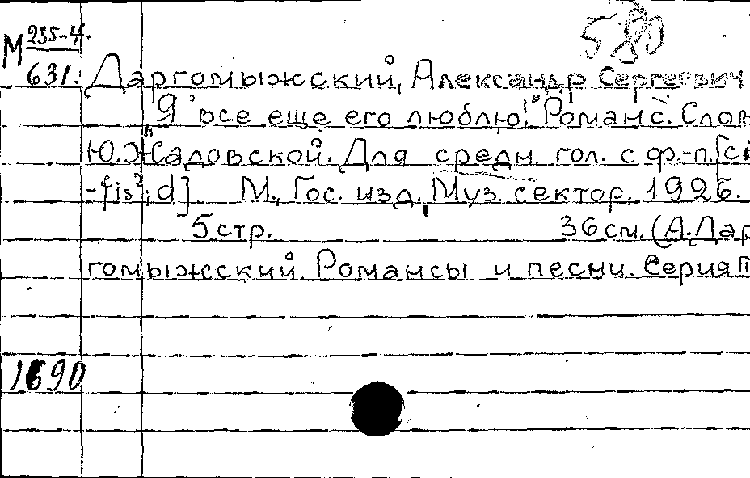 М 255-4.
631.
580
Даргомыжский, Александр Сергеевич
"Я все еще его люблю!" Романс. Слова
Ю. Жадовской. Для средн. гол. с ф.-п. [cis
-fis²; d] М., Гос. изд. Муз. сектор. 1926.
5 стр. 36 см. (А. Дар
гомыжский. Романсы и песни. Серия
1690